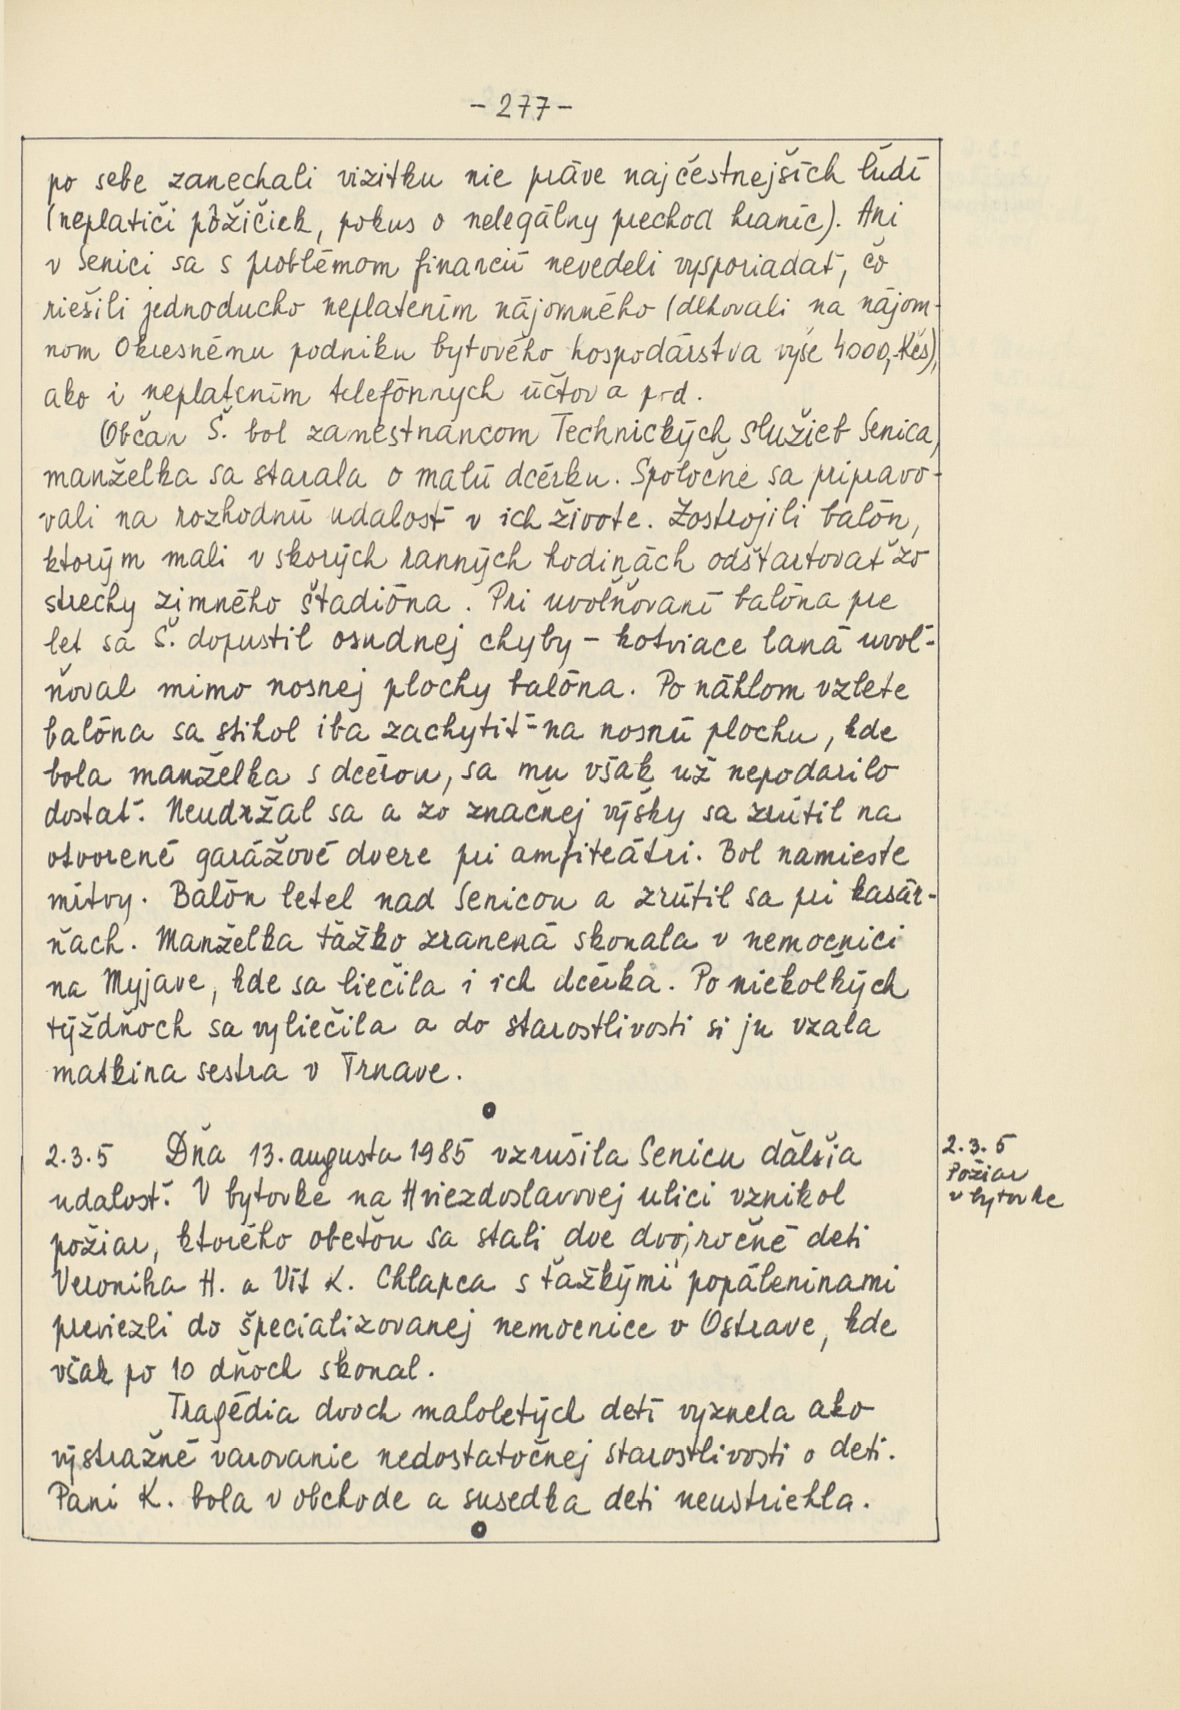 - 277 -
po sebe zanechali vizitku nie práve najčestnejších ľudí
(neplatiči pôžičiek, pokus o nelegálny prechod hraníc). Ani
v Senici sa s problémom financií nevedeli vysporiadať, čo
riešili jednoducho neplatením nájomného (dlhovali na nájom-
nom Okresnému podniku bytového hospodárstva vyše 4000,-Kčs),
ako i neplatením telefónnych účtov a pod.
Občan Š. bol zamestnancom Technických služieb Senica,
manželka sa starala o malú dcérku. Spoločne sa pripravo-
vali na rozhodnú udalosť v ich živote. Zostrojili balón,
ktorým mali v skorých ranných hodinách odštartovať zo
strechy zimného štadióna. Pri uvoľňovaní balóna pre
let sa Š. dopustil osudnej chyby - kotviace laná uvoľ-
ňoval mimo nosnej plochy balóna. Po náhlom vzlete
balóna sa stihol iba zachytiť na nosnú plochu, kde
bola manželka s dcérou, sa mu však už nepodarilo
dostať. Neudržal sa a zo značnej výšky sa zrútil na
otvorené garážové dvere pri amfiteátri. Bol namieste
mŕtvy. Balón letel nad Senicou a zrútil sa pri kasár-
ňach. Manželka ťažko zranená skonala v nemocnici
na Myjave, kde sa liečila i ich dcérka. Po niekoľkých
týždňoch sa vyliečila a do starostlivosti si ju vzala
matkina sestra v Trnave.
2.3.5 Dňa 13. augusta 1985 vzrušila Senicu ďalšia
udalosť. V bytovke na Hviezdoslavovej ulici vznikol
požiar, ktorého obeťou sa stali dve dvojročné deti
Veronika H. a Vít K. Chlapca s ťažkými popáleninami
previezli do špecializovanej nemocnice v Ostrave, kde
však po 10 dňoch skonal.
Tragédia dvoch maloletých detí vyznela ako
výstražné varovanie nedostatočnej starostlivosti o deti.
Pani K. bola v obchode a susedka deti neustriehla.
2.3.5
Požiar
v bytovke